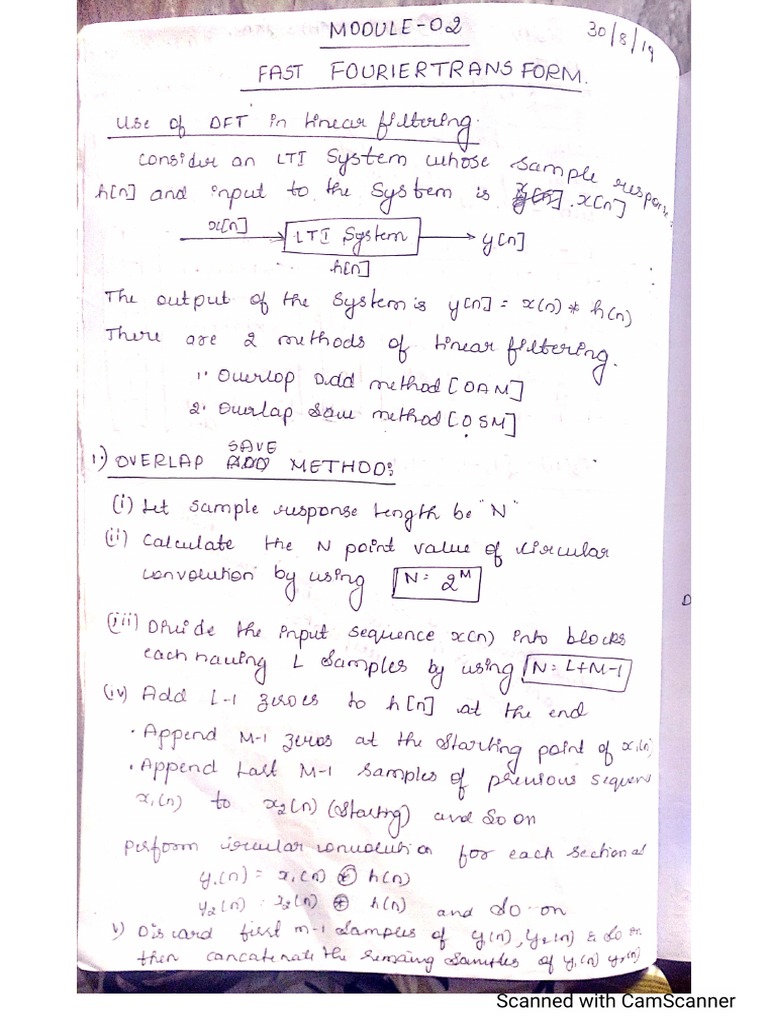 MODULE-02
30/8/19
FAST FOURIER TRANSFORM.
Use of DFT in linear filtering.
Consider an LTI System whose sample response
h[n] and input to the system is x[n]
x[n]
LTI System
y[n]
h[n]
The output of the system is y[n] = x(n) * h(n)
There are 2 methods of linear filtering.
1. Overlap Add method [OAM]
2. Overlap Save method [OSM]
1.) OVERLAP SAVE METHOD:
(i) Let sample response length be "N"
(ii) Calculate the N point value of circular
convolution by using N = 2^M
(iii) Divide the input sequence x(n) into blocks
each having L samples by using N = L+M-1
(iv) Add L-1 zeroes to h[n] at the end
• Append M-1 zeros at the starting point of x1(n)
• Append last M-1 samples of previous sequence
x1(n) to x2(n) (starting) and so on
perform circular convolution for each section
y1(n) = x1(n) ⊛ h(n)
y2(n) = x2(n) ⊛ h(n) and so on
v) Discard first m-1 samples of y1(n), y2(n) & so on
then concatenate the remaing samples of y1(n) y2(n)
D
Scanned with CamScanner